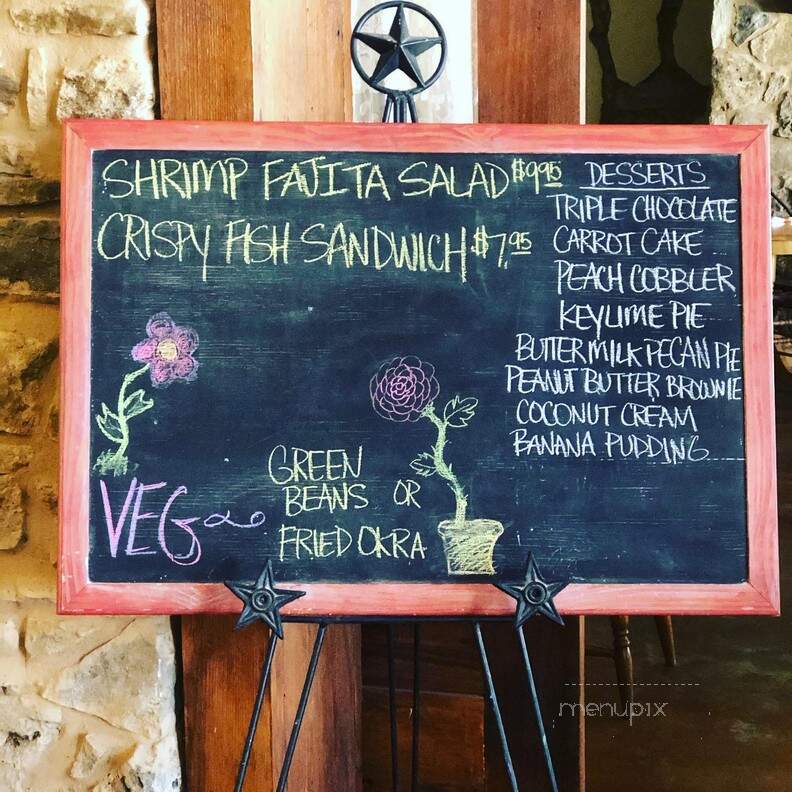 SHRIMP FAJITA SALAD $9.95
CRISPY FISH SANDWICH $7.95
DESSERTS
TRIPLE CHOCOLATE
CARROT CAKE
PEACH COBBLER
KEYLIME PIE
BUTTERMILK PECAN PIE
PEANUT BUTTER BROWNIE
COCONUT CREAM
BANANA PUDDING
VEG
GREEN
BEANS OR
FRIED OKRA
menupix